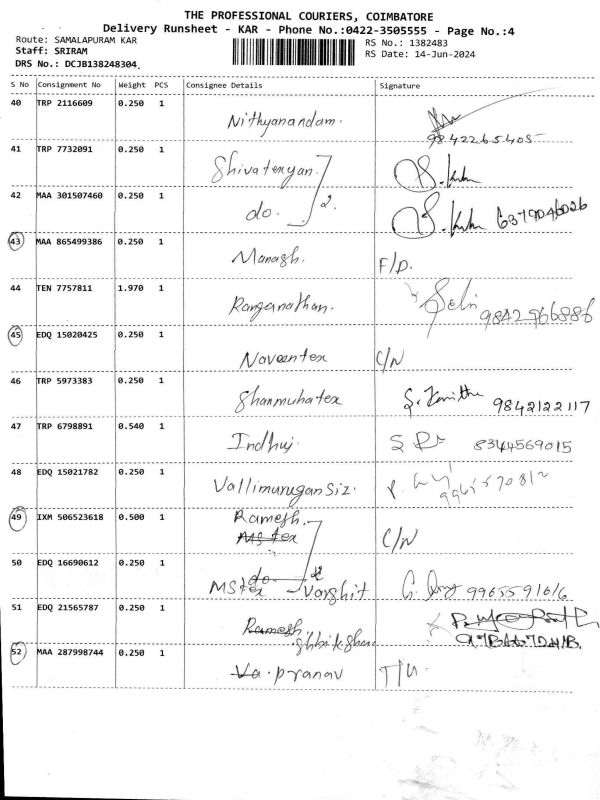 THE PROFESSIONAL COURIERS, COIMBATORE
Delivery Runsheet - KAR - Phone No.:0422-3505555 - Page No.:4
Route: SAMALAPURAM KAR
Staff: SRIRAM
DRS No.: DCJB138248304.
RS No.: 1382483
RS Date: 14-Jun-2024
S No Consignment No Weight PCS Consignee Details Signature
40 TRP 2116609 0.250 1
Nithyanandam.
9842265405
41 TRP 7732091 0.250 1
Shivatenyan.
42 MAA 301507460 0.250 1
do. 2.
6379046026
43 MAA 865499386 0.250 1
Managh. F/D.
44 TEN 7757811 1.970 1
Ranganathan.
9842966886
45 EDQ 15020425 0.250 1
Naveentex C/N
46 TRP 5973383 0.250 1
Shanmuhatex 9842122117
47 TRP 6798891 0.540 1
Indhuj 8344569015
48 EDQ 15021782 0.250 1
Vallimurugan Siz.
49 IXM 506523618 0.500 1
Ramesh.
MS tex C/N
50 EDQ 16690612 0.250 1
do. 2
MStex Varshit 9965591616
51 EDQ 21565787 0.250 1
Ramesh
52 MAA 287998744 0.250 1
Va. pranav T/U.